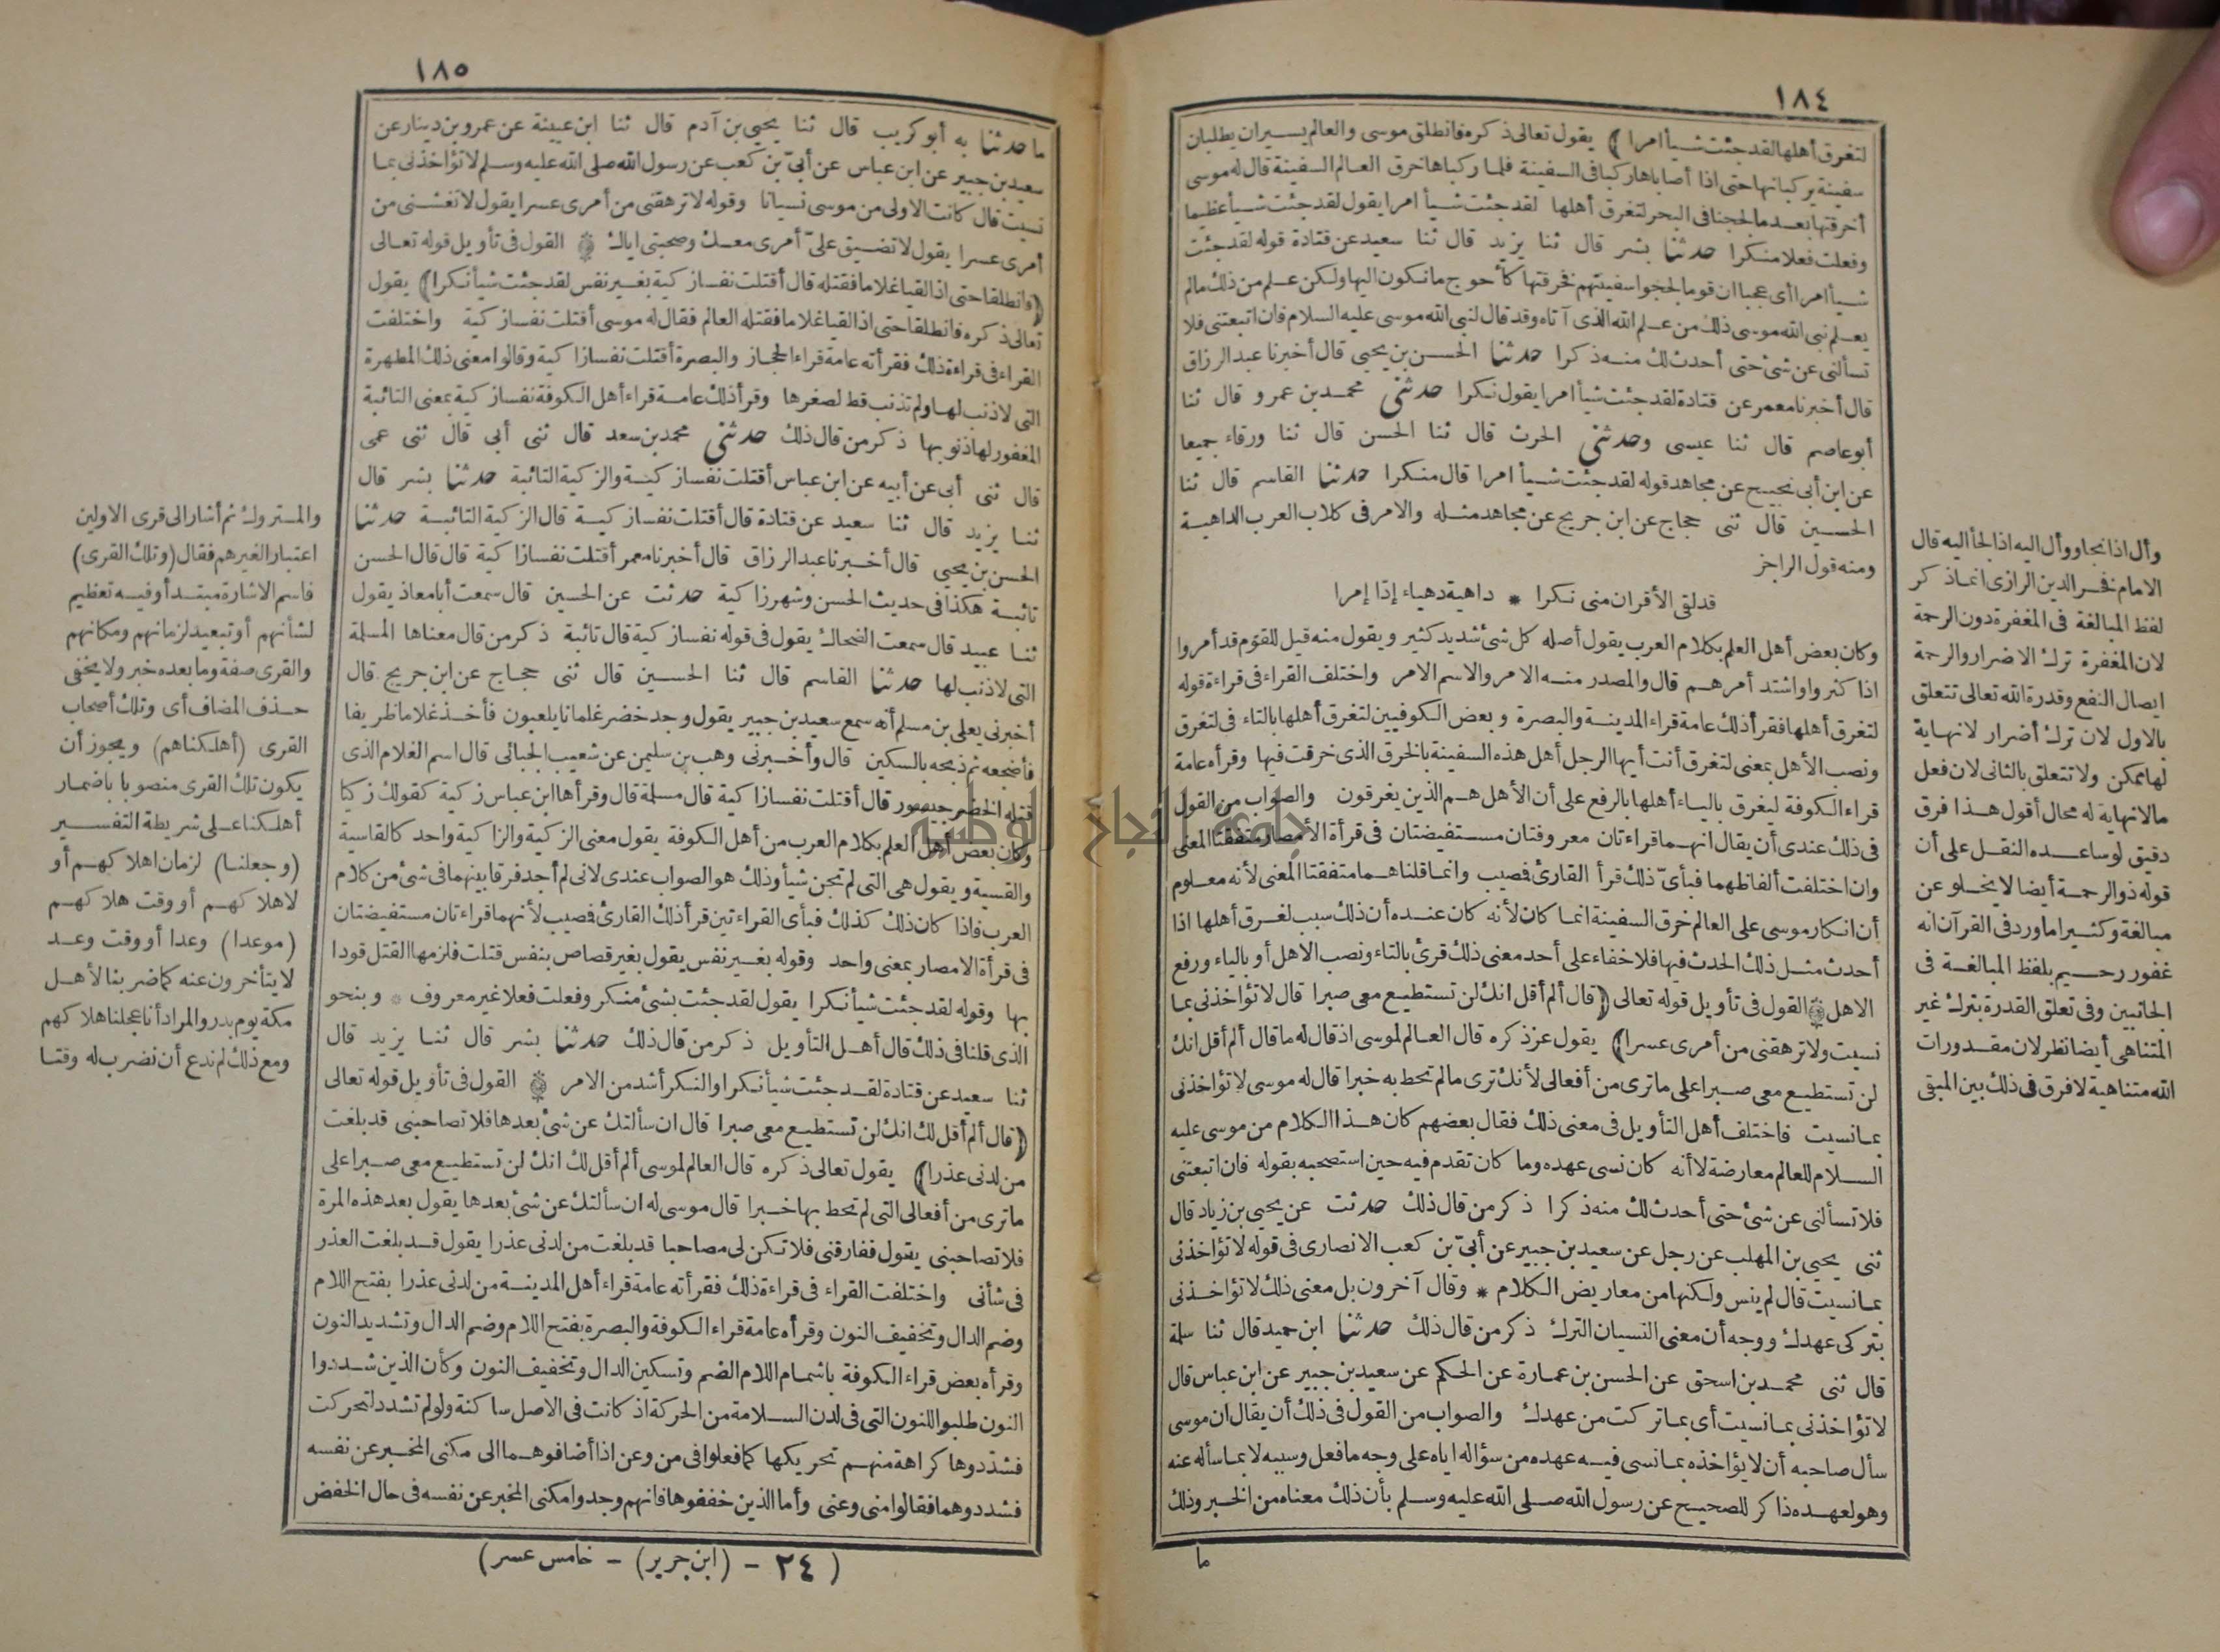 ١٨٤
لتغرق أهلها لقد جئت شيأ امرا) يقول تعالى ذكره فانطلق موسى والعالم يسيران يطلبان
سفينة يركبانها حتى اذا أصاباها ركبا فى السفينة فلما ركباها خرق العالم السفينة قال له موسى
أخرقتها بعدما لججنا فى البحر لتغرق أهلها لقد جئت شيأ امرا يقول لقد جئت شيأ عظيما
وفعلت فعلا منكرا حدثنا بشر قال ثنا يزيد قال ثنا سعيد عن قتادة قوله لقد جئت
شيأ امرا أى عجبا ان قوما لججوا سفينتهم فخرقتها كأحوج ما نكون اليها ولكن علم من ذلك مالم
يعلم نبى الله موسى ذلك من علم الله الذى آتاه وقد قال لنبى الله موسى عليه السلام فان اتبعتنى فلا
تسألنى عن شئ حتى أحدث لك منه ذكرا حدثنا الحسن بن يحيى قال أخبرنا عبد الرزاق
قال أخبرنا معمر عن قتادة لقد جئت شيأ امرا يقول نكرا حدثنى محمد بن عمرو قال ثنا
أبو عاصم قال ثنا عيسى وحدثنى الحرث قال ثنا الحسن قال ثنا ورقاء جميعا
عن ابن أبى نجيح عن مجاهد قوله لقد جئت شيأ امرا قال منكرا حدثنا القاسم قال ثنا
الحسين قال ثنى حجاج عن ابن جريج عن مجاهد مثله والامر فى كلاب العرب الداهية
ومنه قول الراجز
قد لقى الأقران منى نكرا * داهية دهياء إذا إمرا
وكان بعض أهل العلم بكلام العرب يقول أصله كل شئ شديد كثير ويقول منه قيل للقوم قد أمروا
اذا كثروا واشتد أمرهم قال والمصدر منه الامر والاسم الامر واختلف القراء فى قراءة قوله
لتغرق أهلها فقرأ ذلك عامة قراء المدينة والبصرة وبعض الكوفيين لتغرق أهلها بالتاء فى لتغرق
ونصب الأهل بمعنى لتغرق أنت أيها الرجل أهل هذه السفينة بالخرق الذى خرقت فيها وقرأه عامة
قراء الكوفة ليغرق بالياء أهلها بالرفع على أن الأهل هم الذين يغرقون والصواب من القول
فى ذلك عندى أن يقال انهما قراءتان معروفتان مستفيضتان فى قرأة الأمصار متفقتا المعنى
وان اختلفت ألفاظهما فبأىّ ذلك قرأ القارئ فصيب وانما قلنا هما متفقتا المعنى لأنه معلوم
أن انكار موسى على العالم خرق السفينة انما كان لأنه كان عنده أن ذلك سبب لغرق أهلها اذا
أحدث مثل ذلك الحدث فيها فلا خفاء على أحد معنى ذلك قرئ بالتاء ونصب الاهل أو بالياء ورفع
الاهل القول فى تأويل قوله تعالى (قال ألم أقل انك لن تستطيع معى صبرا قال لا تؤاخذنى بما
نسيت ولا ترهقنى من أمرى عسرا) يقول عز ذكره قال العالم لموسى اذ قال له ما قال ألم أقل انك
لن تستطيع معى صبرا على ما ترى من أفعالى لأنك ترى مالم تحط به خبرا قال له موسى لا تؤاخذنى
بما نسيت فاختلف أهل التأويل فى معنى ذلك فقال بعضهم كان هذا الكلام من موسى عليه
السلام للعالم معارضة لا أنه كان نسى عهده وما كان تقدم فيه حين استصحبه بقوله فان اتبعتنى
فلا تسألنى عن شئ حتى أحدث لك منه ذكرا ذكر من قال ذلك حدثت عن يحيى بن زياد قال
ثنى يحيى بن المهلب عن رجل عن سعيد بن جبير عن أبىّ بن كعب الانصارى فى قوله لا تؤاخذنى
بما نسيت قال لم ينس ولكنها من معاريض الكلام * وقال آخرون بل معنى ذلك لا تؤاخذنى
بتركى عهدك ووجه أن معنى النسيان الترك ذكر من قال ذلك حدثنا ابن حميد قال ثنا سلمة
قال ثنى محمد بن اسحق عن الحسن بن عمارة عن الحكم عن سعيد بن جبير عن ابن عباس قال
لا تؤاخذنى بما نسيت أى بما تركت من عهدك والصواب من القول فى ذلك أن يقال ان موسى
سأل صاحبه أن لا يؤاخذه بما نسى فيه عهده من سؤاله اياه على وجه ما فعل وسببه لا بما سأله عنه
وهو لعهده ذاكر للصحيح عن رسول الله صلى الله عليه وسلم بأن ذلك معناه من الخبر وذلك
ما
وأل اذا نجا ووأل اليه اذا لجأ اليه قال
الامام فخر الدين الرازى انما ذكر
لفظ المبالغة فى المغفرة دون الرحمة
لان المغفرة ترك الاضرار والرحمة
ايصال النفع وقدرة الله تعالى تتعلق
بالاول لان ترك أضرار لا نهاية
لها ممكن ولا تتعلق بالثانى لان فعل
مالا نهاية له محال أقول هذا فرق
دقيق لو ساعده النقل على أن
قوله ذو الرحمة أيضا لا يخلو عن
مبالغة وكثيرا ما ورد فى القرآن انه
غفور رحيم بلفظ المبالغة فى
الجانبين وفى تعلق القدرة بترك غير
المتناهى أيضا نظر لان مقدورات
الله متناهية لا فرق فى ذلك بين المبقى
١٨٥
ما حدثنا به أبو كريب قال ثنا يحيى بن آدم قال ثنا ابن عيينة عن عمرو بن دينار عن
سعيد بن جبير عن ابن عباس عن أبىّ بن كعب عن رسول الله صلى الله عليه وسلم لا تؤاخذنى بما
نسيت قال كانت الاولى من موسى نسيانا وقوله لا ترهقنى من أمرى عسرا يقول لا تغشنى من
أمرى عسرا يقول لا تضيق علىّ أمرى معك وصحبتى اياك القول فى تأويل قوله تعالى
(وانطلقا حتى اذا لقيا غلاما فقتله قال أقتلت نفسا زكية بغير نفس لقد جئت شيأ نكرا) يقول
تعالى ذكره فانطلقا حتى اذا لقيا غلاما فقتله العالم فقال له موسى أقتلت نفسا زكية واختلفت
القراء فى قراءة ذلك فقرأته عامة قراء الحجاز والبصرة أقتلت نفسا زاكية وقالوا معنى ذلك المطهرة
التى لا ذنب لها ولم تذنب قط لصغرها وقرأ ذلك عامة قراء أهل الكوفة نفسا زكية بمعنى التائبة
المغفور لها ذنوبها ذكر من قال ذلك حدثنى محمد بن سعد قال ثنى أبى قال ثنى عمى
قال ثنى أبى عن أبيه عن ابن عباس أقتلت نفسا زكية والزكية التائبة حدثنا بشر قال
ثنا يزيد قال ثنا سعيد عن قتادة قال أقتلت نفسا زكية قال الزكية التائبة حدثنا
الحسن بن يحيى قال أخبرنا عبد الرزاق قال أخبرنا معمر أقتلت نفسا زاكية قال قال الحسن
تائبة هكذا فى حديث الحسن وشهر زاكية حدثت عن الحسين قال سمعت أبا معاذ يقول
ثنا عبيد قال سمعت الضحاك يقول فى قوله نفسا زكية قال تائبة ذكر من قال معناها المسلمة
التى لا ذنب لها حدثنا القاسم قال ثنا الحسين قال ثنى حجاج عن ابن جريج قال
أخبرنى يعلى بن مسلم أنه سمع سعيد بن جبير يقول وجد خضر غلمانا يلعبون فأخذ غلاما ظريفا
فأضجعه ثم ذبحه بالسكين قال وأخبرنى وهب بن سليمن عن شعيب الجبائى قال اسم الغلام الذى
قتله الخضر جيسور قال أقتلت نفسا زاكية قال مسلمة قال وقرأها ابن عباس زكية كقولك زكيا
وكان بعض أهل العلم بكلام العرب من أهل الكوفة يقول معنى الزكية والزاكية واحد كالقاسية
والقسية ويقول هى التى لم تجن شيأ وذلك هو الصواب عندى لانى لم أجد فرقا بينهما فى شئ من كلام
العرب فاذا كان ذلك كذلك فبأى القراءتين قرأ ذلك القارئ فصيب لأنهما قراءتان مستفيضتان
فى قرأة الامصار بمعنى واحد وقوله بغير نفس يقول بغير قصاص بنفس قتلت فلزمها القتل قودا
بها وقوله لقد جئت شيأ نكرا يقول لقد جئت بشئ منكر وفعلت فعلا غير معروف * وبنحو
الذى قلنا فى ذلك قال أهل التأويل ذكر من قال ذلك حدثنا بشر قال ثنا يزيد قال
ثنا سعيد عن قتادة لقد جئت شيأ نكرا والنكر أشد من الامر القول فى تأويل قوله تعالى
(قال ألم أقل لك انك لن تستطيع معى صبرا قال ان سألتك عن شئ بعدها فلا تصاحبنى قد بلغت
من لدنى عذرا) يقول تعالى ذكره قال العالم لموسى ألم أقل لك انك لن تستطيع معى صبرا على
ما ترى من أفعالى التى لم تحط بها خبرا قال موسى له ان سألتك عن شئ بعدها يقول بعد هذه المرة
فلا تصاحبنى يقول ففارقنى فلا تكن لى مصاحبا قد بلغت من لدنى عذرا يقول قد بلغت العذر
فى شأنى واختلفت القراء فى قراءة ذلك فقرأته عامة قراء أهل المدينة من لدنى عذرا بفتح اللام
وضم الدال وتخفيف النون وقرأه عامة قراء الكوفة والبصرة بفتح اللام وضم الدال وتشديد النون
وقرأه بعض قراء الكوفة باشمام اللام الضم وتسكين الدال وتخفيف النون وكأن الذين شددوا
النون طلبوا للنون التى فى لدن السلامة من الحركة اذ كانت فى الاصل ساكنة ولو لم تشدد لتحركت
فشددوها كراهة منهم تحريكها كما فعلوا فى من وعن اذا أضافوهما الى مكنى المخبر عن نفسه
فشددوهما فقالوا منى وعنى وأما الذين خففوها فانهم وجدوا مكنى المخبر عن نفسه فى حال الخفض
(٢٤ - (ابن جرير) - خامس عشر)
والمتروك ثم أشار الى قرى الاولين
اعتبارا لغيرهم فقال (وتلك القرى)
فاسم الاشارة مبتدأ وفيه تعظيم
لشأنهم أو تبعيد لزمانهم ومكانهم
والقرى صفة وما بعده خبر ولا يخفى
حذف المضاف أى وتلك أصحاب
القرى (أهلكناهم) ويجوز أن
يكون تلك القرى منصوبا باضمار
أهلكنا على شريطة التفسير
(وجعلنا) لزمان اهلاكهم أو
لاهلاكهم أو وقت هلاكهم
(موعدا) وعدا أو وقت وعد
لا يتأخرون عنه كما ضربنا لأهل
مكة يوم بدر والمراد أنا عجلنا هلاكهم
ومع ذلك لم ندع أن نضرب له وقتا